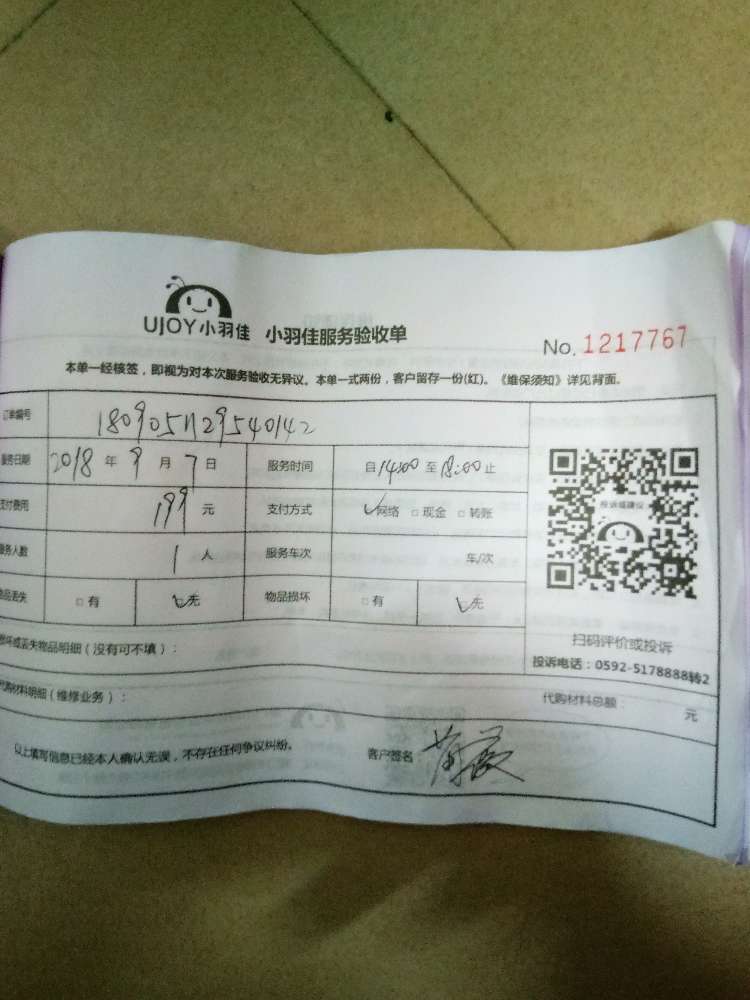 UJOY小羽佳 小羽佳服务验收单
No. 1217767
本单一经核签，即视为对本次服务验收无异议。本单一式两份，客户留存一份(红)。《维保须知》详见背面。
订单编号 1809051129540142
服务日期 2018 年 9 月 7 日 服务时间 自14:00至18:00止
支付费用 199 元 支付方式 ☑网络 □现金 □转账
服务人数 1 人 服务车次 车/次
物品丢失 □有 ☑无 物品损坏 □有 ☑无
投诉或建议
扫码评价或投诉
投诉电话：0592-5178888转2
损坏或丢失物品明细（没有可不填）：
代购材料明细（维修业务）： 代购材料总额： 元
以上填写信息已经本人确认无误，不存在任何争议纠纷。 客户签名